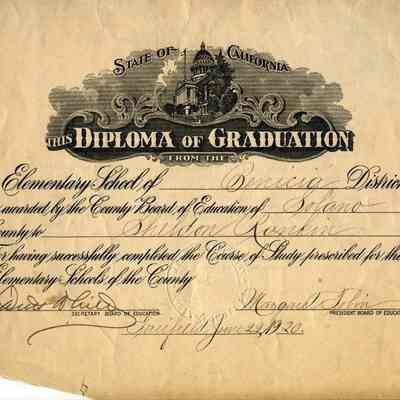 STATE OF CALIFORNIA
THIS DIPLOMA OF GRADUATION
FROM THE
Elementary School of Benicia District
awarded by the County Board of Education of Solano
County to Sheldon Rankin
for having successfully completed the Course of Study prescribed for the
Elementary Schools of the County
White Margaret
SECRETARY BOARD OF EDUCATION PRESIDENT BOARD OF EDUCA
Fairfield, June 1920.